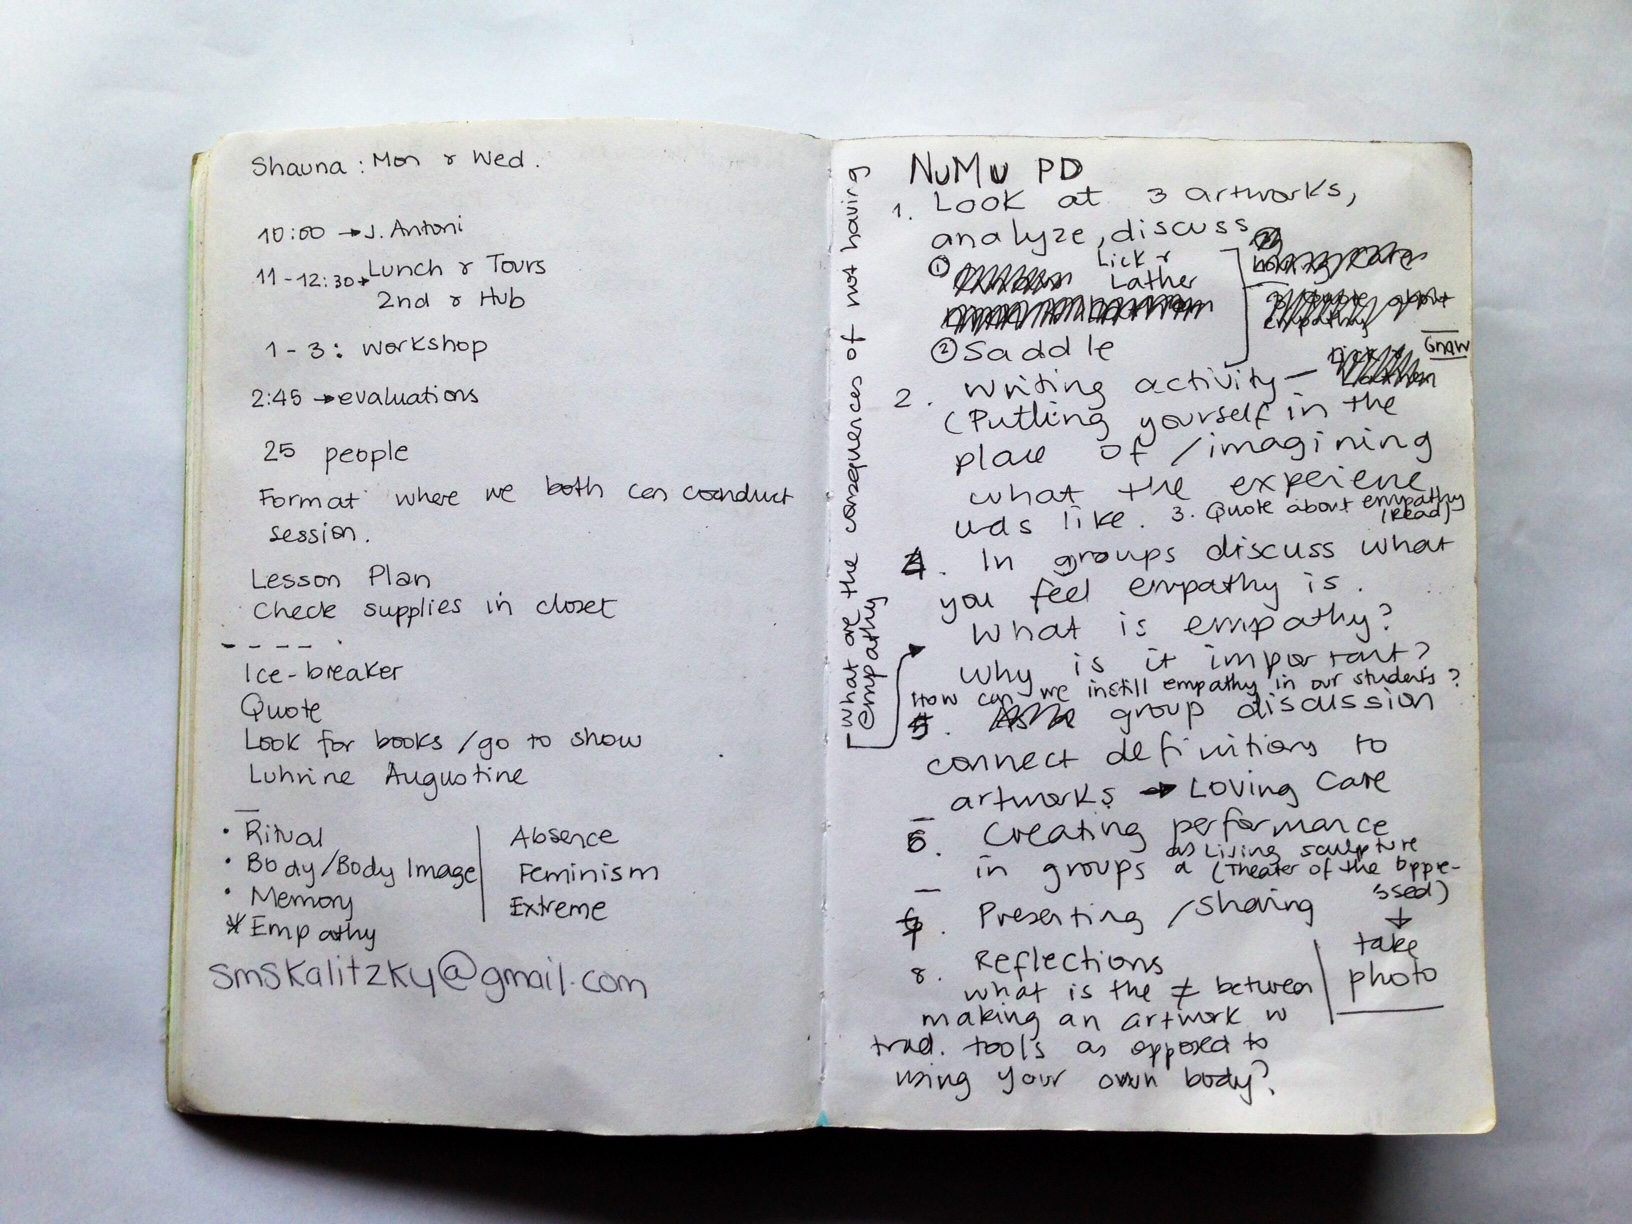 Shauna : Mon & Wed.
10:00 → J. Antoni
11 - 12:30 → Lunch & Tours
2nd & Hub
1 - 3 : workshop
2:45 → evaluations
25 people
Format where we both can conduct
session.
Lesson Plan
Check supplies in closet
- - - -
Ice-breaker
Quote
Look for books /go to show
Luhrine Augustine
• Ritual
• Body/Body Image
• Memory
* Empathy
Absence
Feminism
Extreme
smskalitzky@gmail.com
What are the consequences of not having
empathy
NuMu PD
1. Look at 3 artworks,
analyze, discuss
① Lick &
Lather
② Saddle
Gnaw
2. writing activity —
(Putting yourself in the
place of /imagining
what the experience
was like. 3. Quote about empathy
(Read)
4. In groups discuss what
you feel empathy is.
What is empathy?
Why is it important?
How can we instill empathy in our students?
5. group discussion
connect definitions to
artworks → Loving Care
6. Creating performance
as living sculpture
in groups (Theater of the Oppre-
ssed)
↓
take
photo
7. Presenting /sharing
8. Reflections
what is the ≠ between
making an artwork w
trad. tools as opposed to
using your own body?